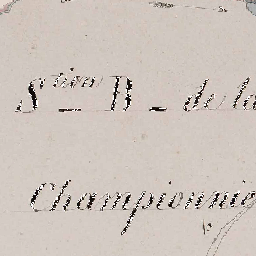 S^tion B - de la
Championnie